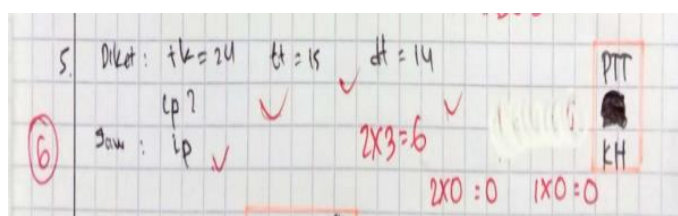 5. Diket : tk = 24 tt = 15 dt = 14 PTT
ip ?
6 Jaw : ip 2x3=6 KH
2x0 = 0 1x0=0